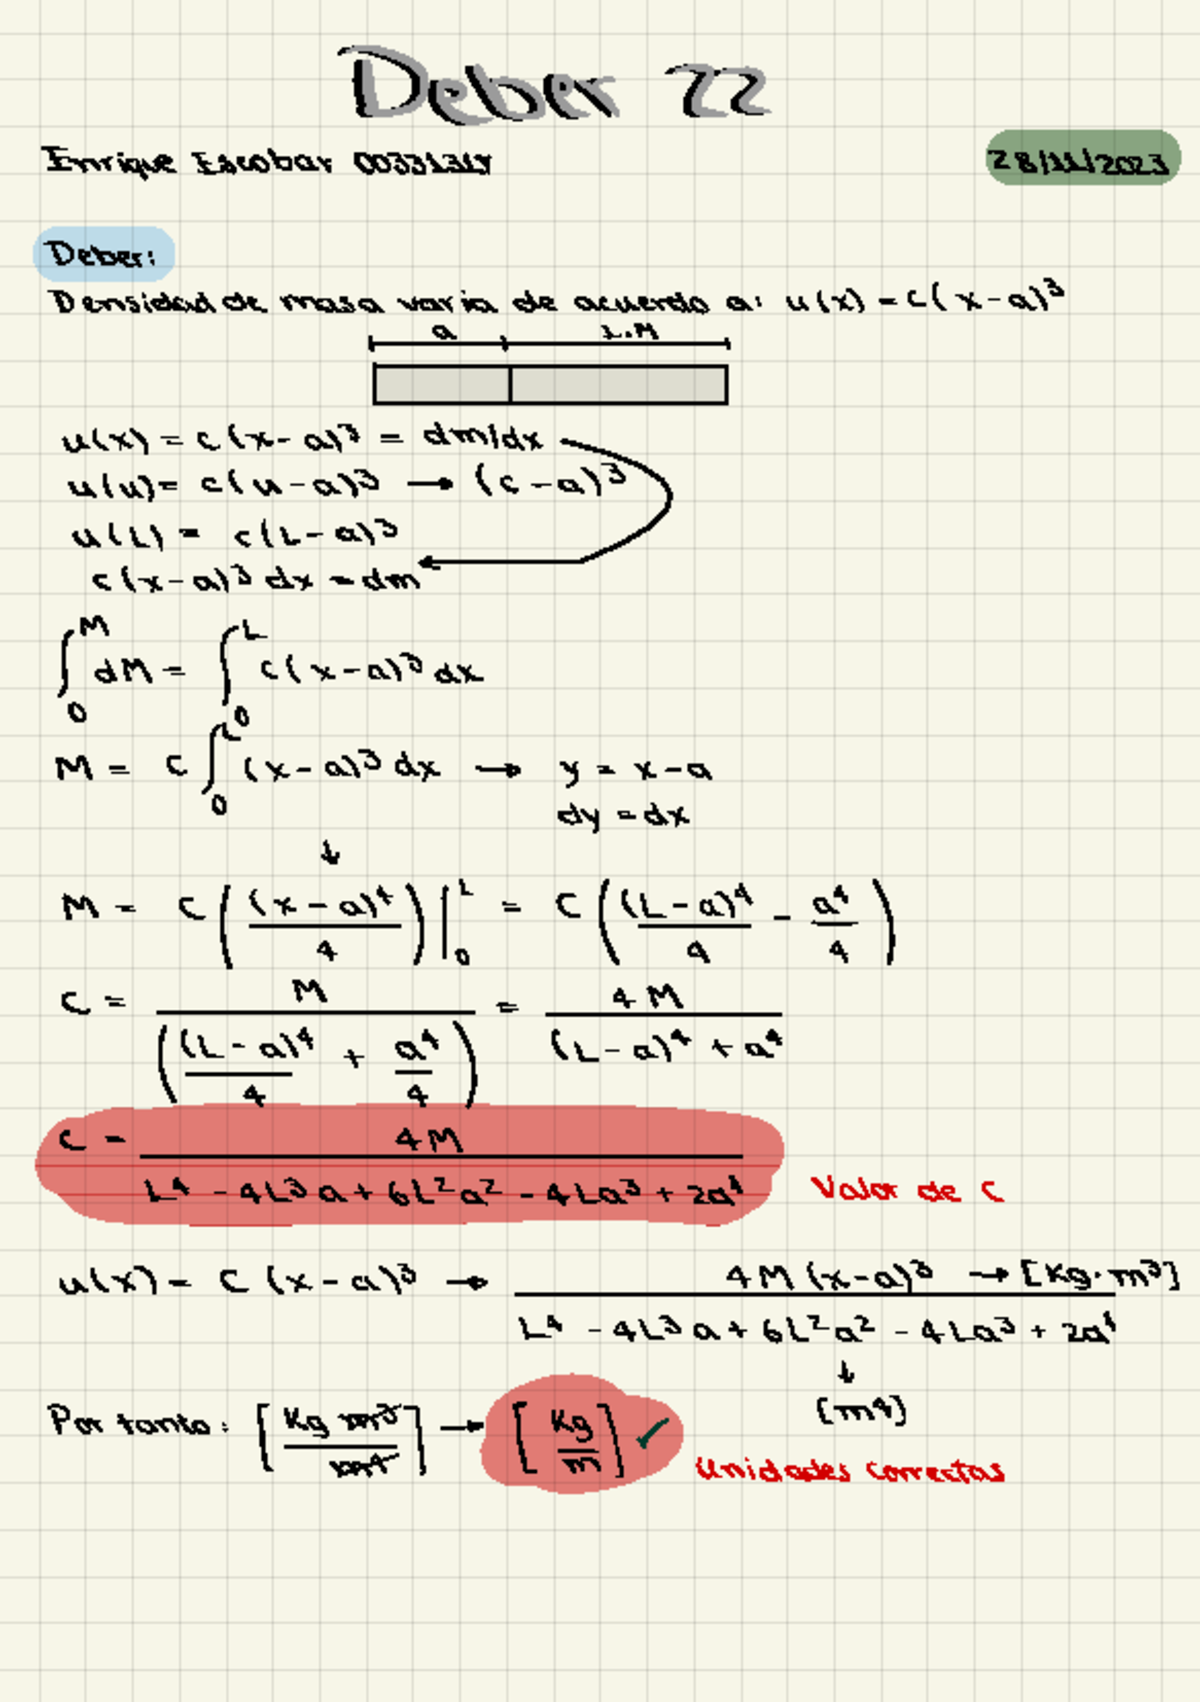 Deber 22
Enrique Escobar 00331314
28/11/2023
Deber:
Densidad de masa varia de acuerdo a: u(x) = c(x-a)³
a L.M
u(x) = c(x-a)³ = dm/dx
u(u) = c(u-a)³ → (c-a)³
u(L) = c(L-a)³
c(x-a)³ dx = dm
∫₀ᴹ dM = ∫₀ᴸ c(x-a)³ dx
M = C ∫₀ᴸ (x-a)³ dx → y = x-a
dy = dx
↓
M = C ((x-a)⁴/4)|₀ᴸ = C ((L-a)⁴/4 - a⁴/4)
C = M/((L-a)⁴/4 + a⁴/4) = 4M/((L-a)⁴ + a⁴)
C = 4M/(L⁴ - 4L³a + 6L²a² - 4La³ + 2a⁴) Valor de C
u(x) = C (x-a)³ → 4M(x-a)³/(L⁴ - 4L³a + 6L²a² - 4La³ + 2a⁴) → [Kg·m³]
↓
[m⁴]
Por tanto: [Kg m³/m⁴] → [Kg/m] ✓
Unidades correctas